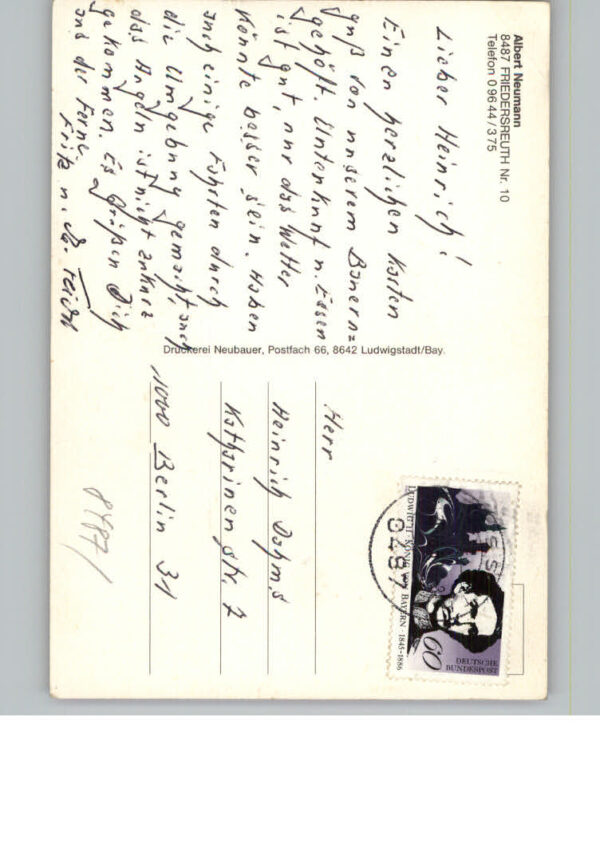 Albert Neumann
8487 FRIEDERSREUTH Nr. 10
Telefon 0 96 44 / 3 75
Lieber Heinrich!
Einen herzlichen Karten
gruß von unserem Bauern=
gehöft. Unterkunft u. Essen
ist gut, nur das Wetter
könnte besser sein. Haben
auch einige Fahrten durch
die Umgebung gemacht, auch
das Angeln ist nicht zu kurz
gekommen. Es grüßen Dich
aus der Ferne
Fritz u.
Druckerei Neubauer, Postfach 66, 8642 Ludwigstadt/Bay.
Herr
Heinrich Dahms
Katharinenstr. 7
1000 Berlin 31
8487/
8487
LUDWIG II · KÖNIG VON BAYERN · 1845-1886
60
DEUTSCHE
BUNDESPOST